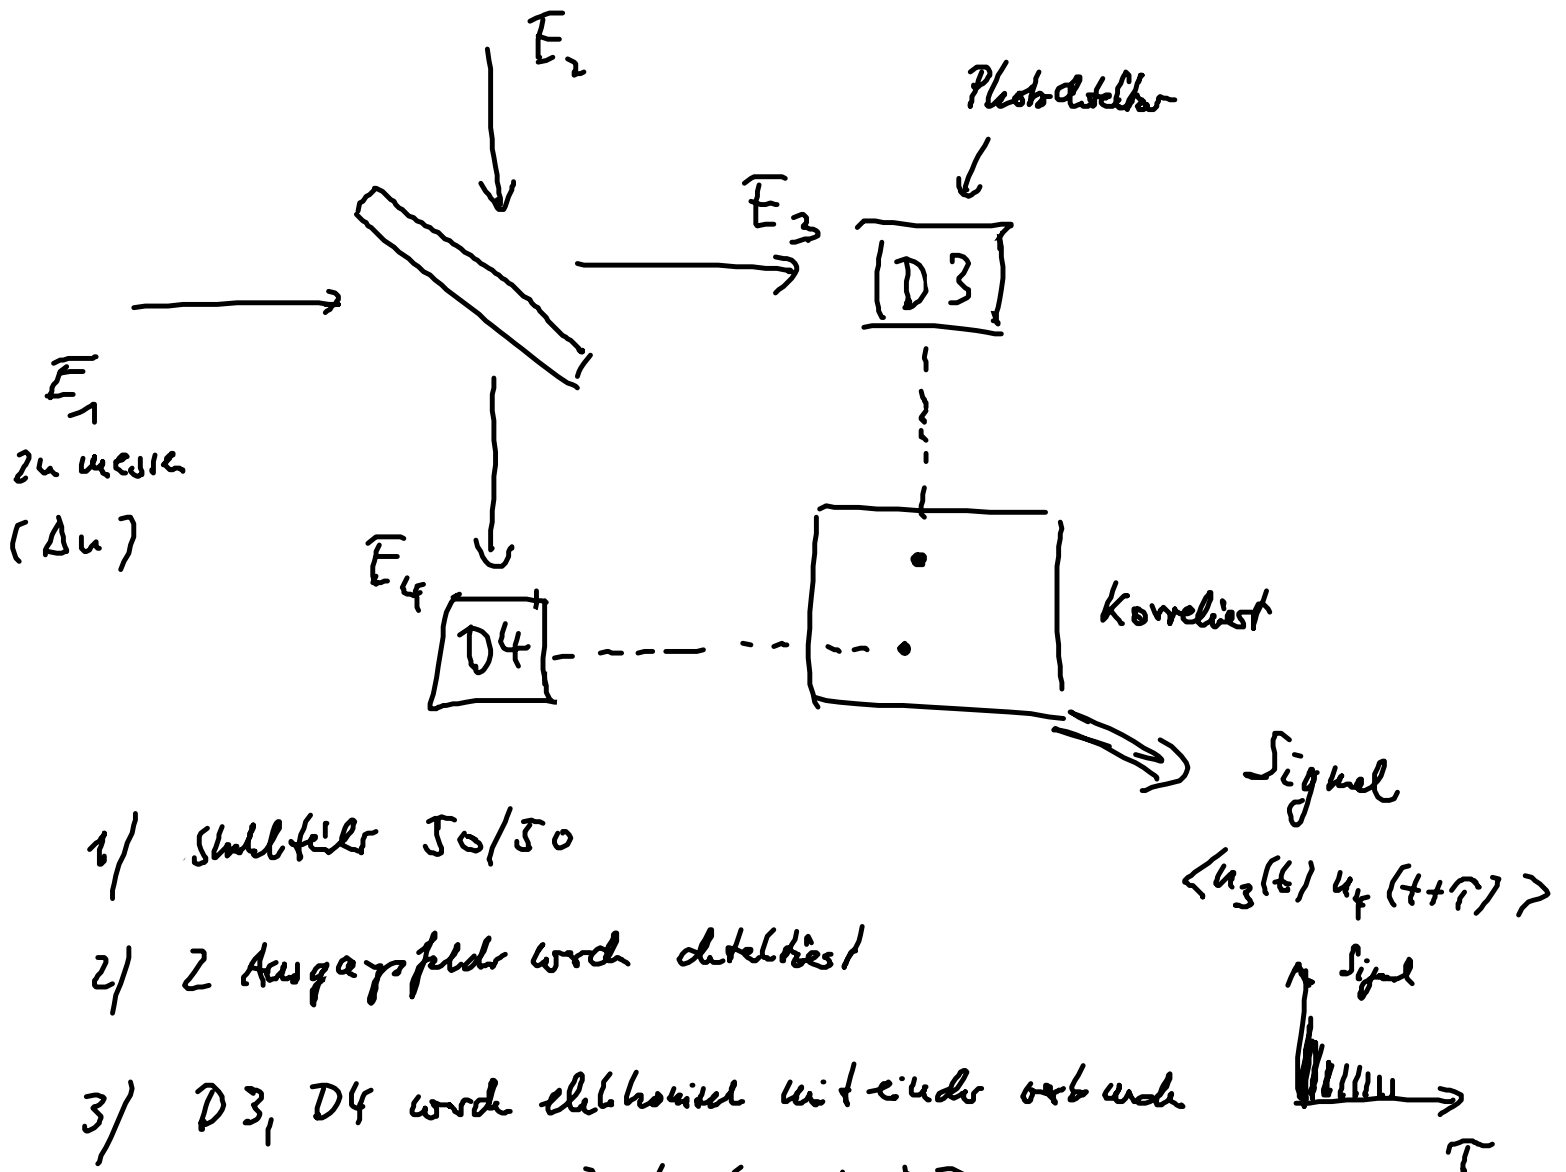 E₂
Photodetektor
E₃
D3
E₁
zu messen
(Δn)
E₄
D4
Korreliert
Signal
<n₃(t) n₄(t+τ)>
1/ Strahlteiler 50/50
2/ 2 Ausgangsfelder werden detektiert
Signal
3/ D3, D4 werden elektronisch miteinander verbunden
τ